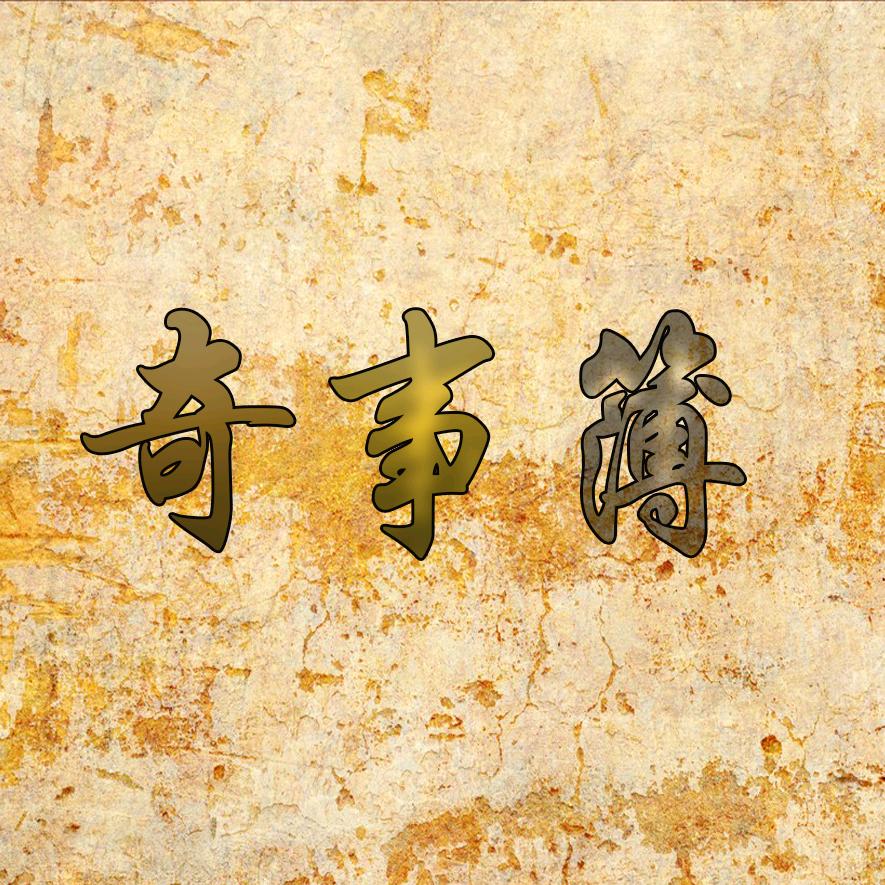 奇事簿